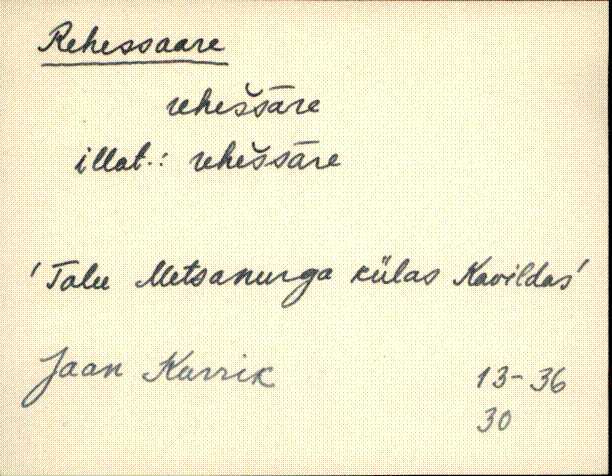 Rehessaare
rehes̆s̄āre
illat.: rehes̆s̄āre
'Talu Metsanurga külas Kavildas'
Jaan Kurrik
13-36
30